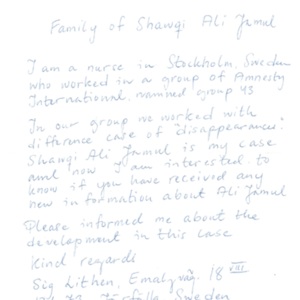 Family of Shawqi Ali Jamul
I am a nurse in Stockholm, Sweden
who worked in a group of Amnesty
International, named group 43
In our group we worked with
difference case of "disappearances".
Shawqi Ali Jamul is my case
and now I am interested to
know if you have received any
new information about Ali Jamul
Please informed me about the
development in this case
Kind regards
Sig Lithen, 18 VIII
Sweden